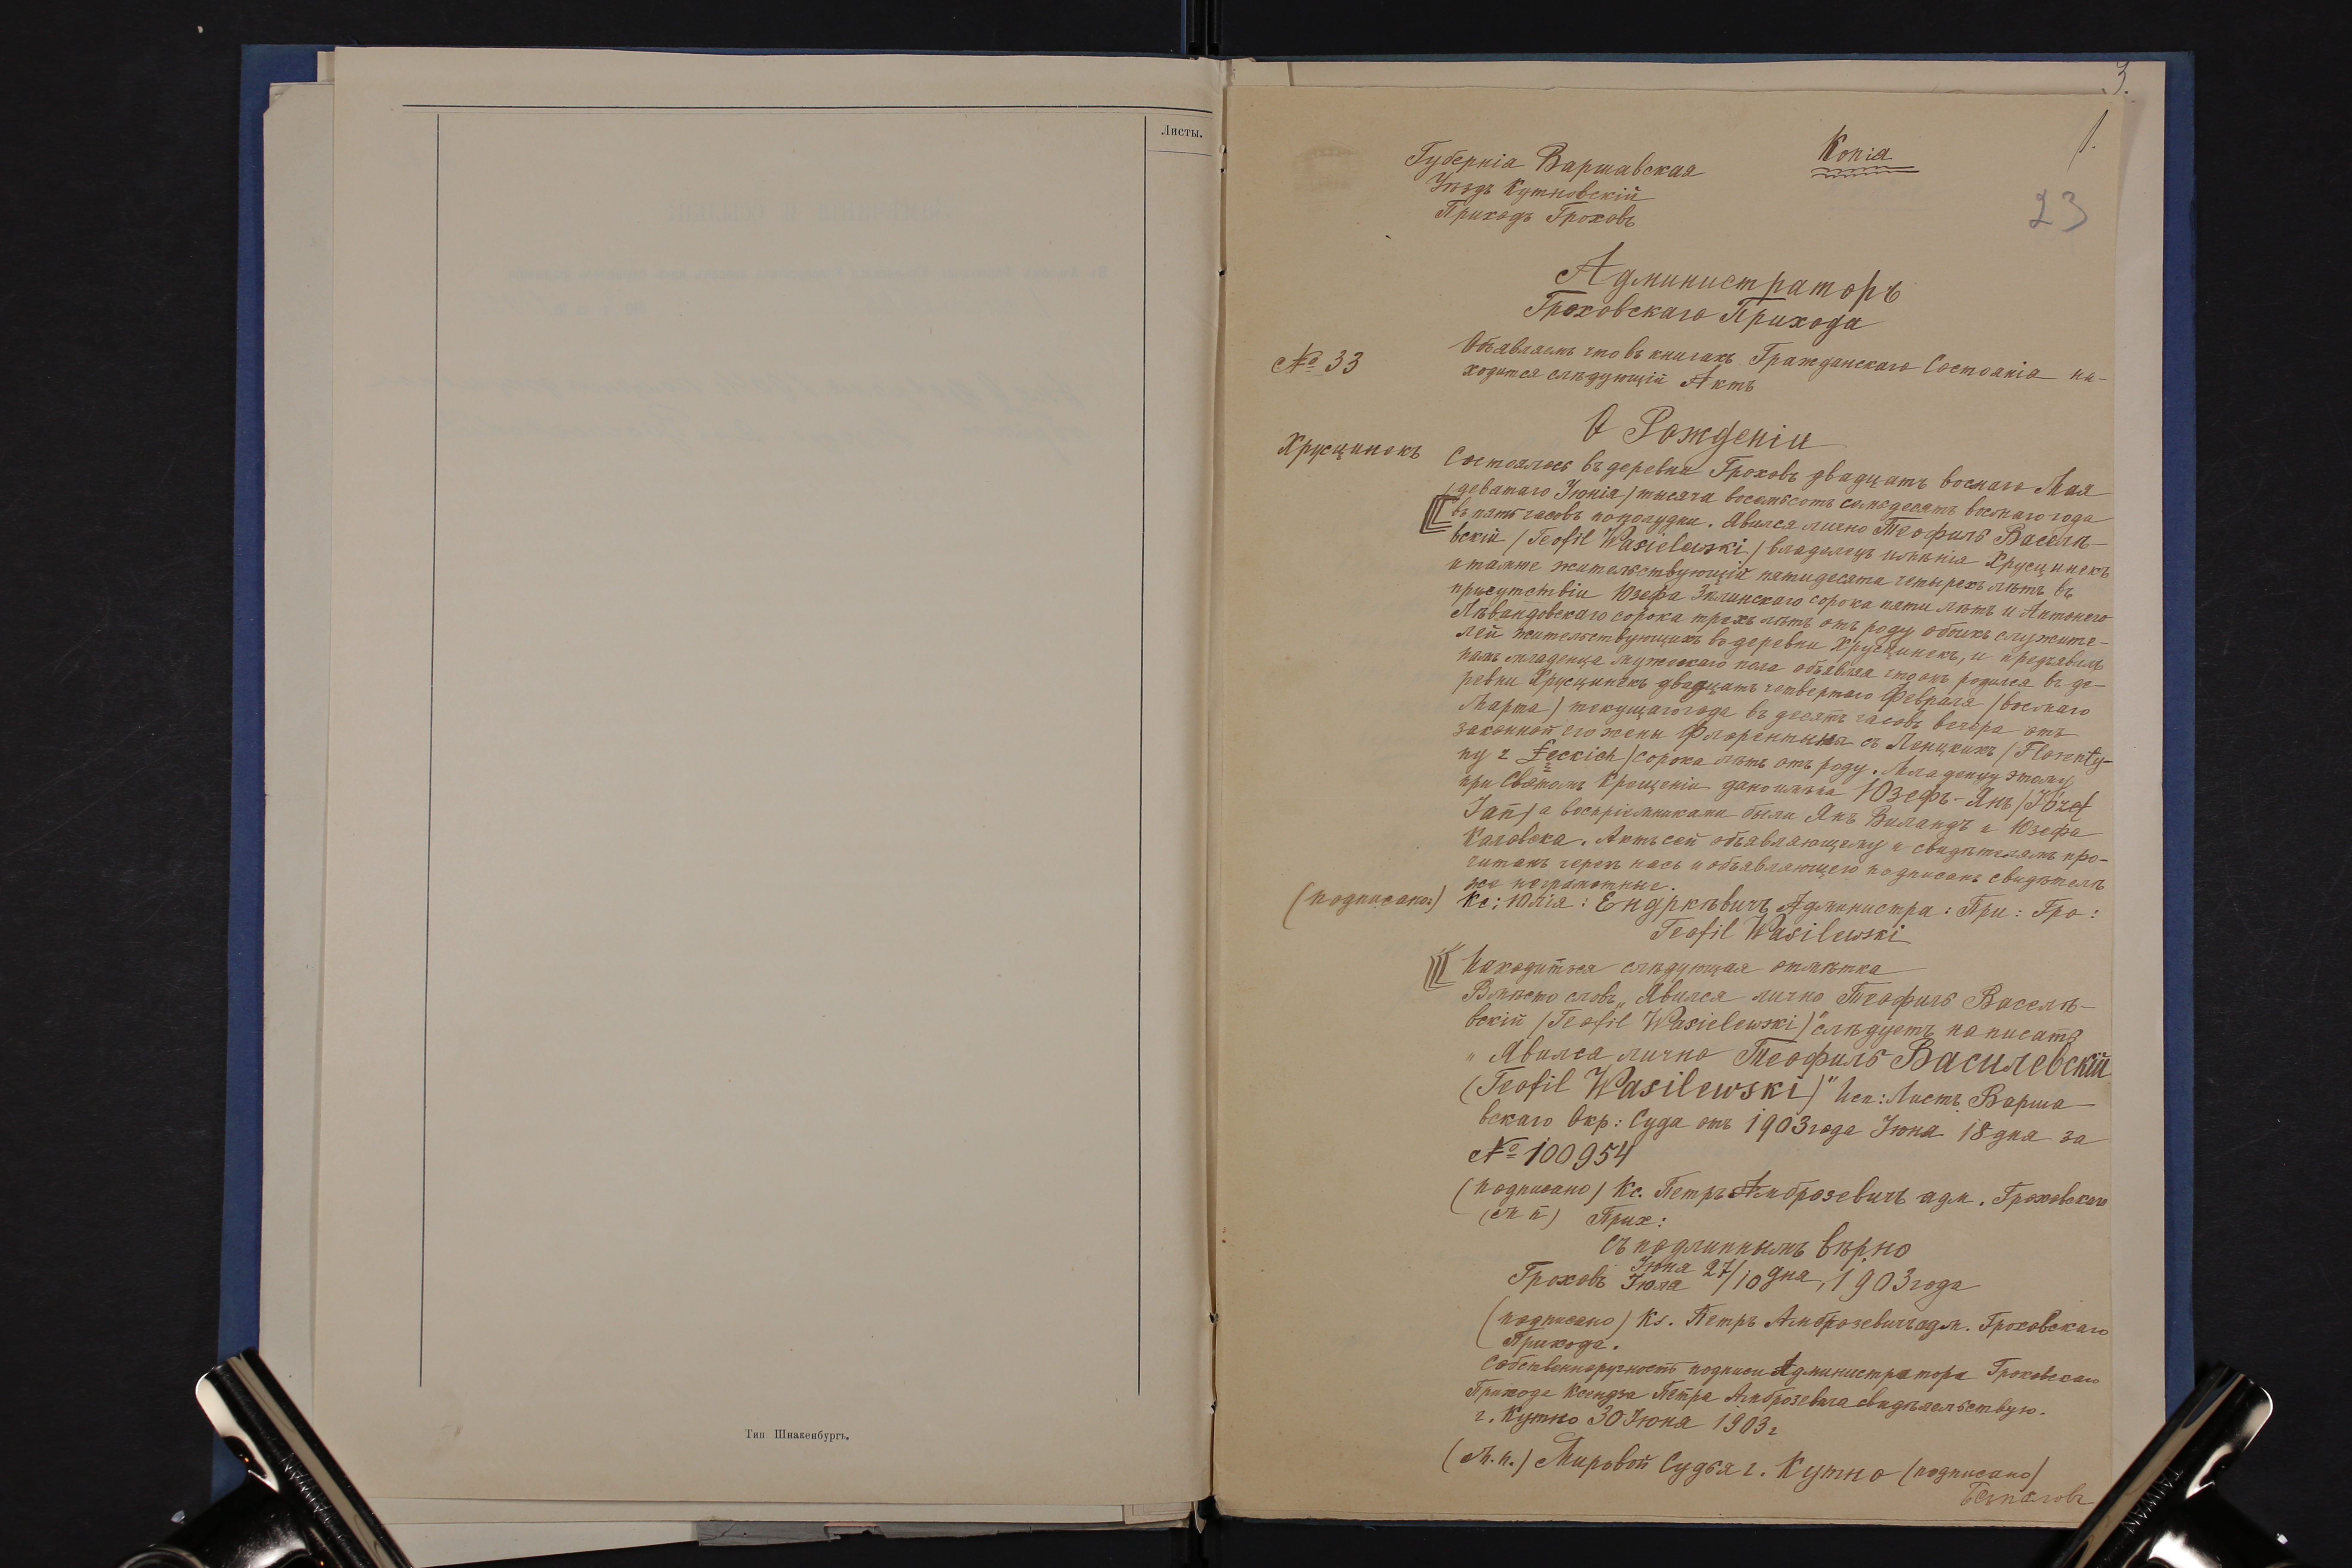 Листы.
Тип Шнакенбургъ.
3.
1.
23
Копія
Губернія Варшавская
Уѣздъ Кутновскій
Приходъ Гроховъ
Администраторъ
Гроховскаго Прихода
№ 33
Объявляемъ что въ книгахъ Гражданскаго Состоянія на-
ходится слѣдующій Актъ
О Рожденіи
Хрусцинекъ
Состоялось въ деревни Гроховъ двадцать восмаго Мая
/девятаго Іюнія/ тысяча восемьсотъ семьдесятъ восмаго года
въ пять часовъ пополудни. Явился лично Теофиль Васелѣ-
вскій /Teofil Wasielewski/ владѣлецъ имѣнія Хрусцинекъ
и тамже жительствующій пятидесята четырехъ лѣтъ въ
присутствіи Юзефа Зѣлинскаго сорока пяти лѣтъ и Антонего
Лѣвандовскаго сорока трехъ лѣтъ отъ роду обоихъ служите-
лей жительствующихъ въ деревни Хрусцинекъ, и предъявилъ
намъ младенца мужескаго пола объявляя что онъ родился въ де-
ревни Хрусцинекъ двадцать четвертаго Февраля /восмаго
Марта/ текущаго года въ десять часовъ вечера отъ
законной его жены Флорентыны съ Ленцкихъ /Florenty-
ny z Łeckich/ сорока лѣтъ отъ роду. Младенцу этому
при Святомъ Крещеніи дано имѣна Юзефъ-Янъ /Józef
Jan/ а воспріемниками были Янъ Виландъ и Юзефа
Каловска. Актъ сей объявляющему и свидѣтелямъ про-
читанъ через насъ и объявляющего подписанъ свидѣтелѣ
же неграмотные.
(подписано:) Кс: Юлія: Ендркѣвичъ Администра: При: Гро:
Teofil Wasilewski
Находиться слѣдующая отмѣтка
Вмѣсто словъ „Явился лично Теофиль Васелѣ-
вскій /Teofil Wasielewski/" слѣдуетъ написать
„Явился лично Теофиль Василевскій
(Teofil Wasilewski)" Исп: Листъ Варша-
вскаго Окр: Суда отъ 1903 года Іюня 18 дня за
№ 100954
(подписано) Кс. Петръ Амброзевичъ адм. Гроховскаго
(М п) Прих:
съ подлиннымъ вѣрно
Гроховъ Іюня 27/
Іюля /10 дня, 1903 года
(подписано) Кс. Петръ Амброзевичъ адм. Гроховскаго
Прихода.
Собственноручность подписи Администратора Гроховскаго
Прихода Ксендза Петра Амброзевича свидѣтельствую.
г. Кутно 30 Іюня 1903 г
(М.п.) Мировой Судья г. Кутно (подписано)